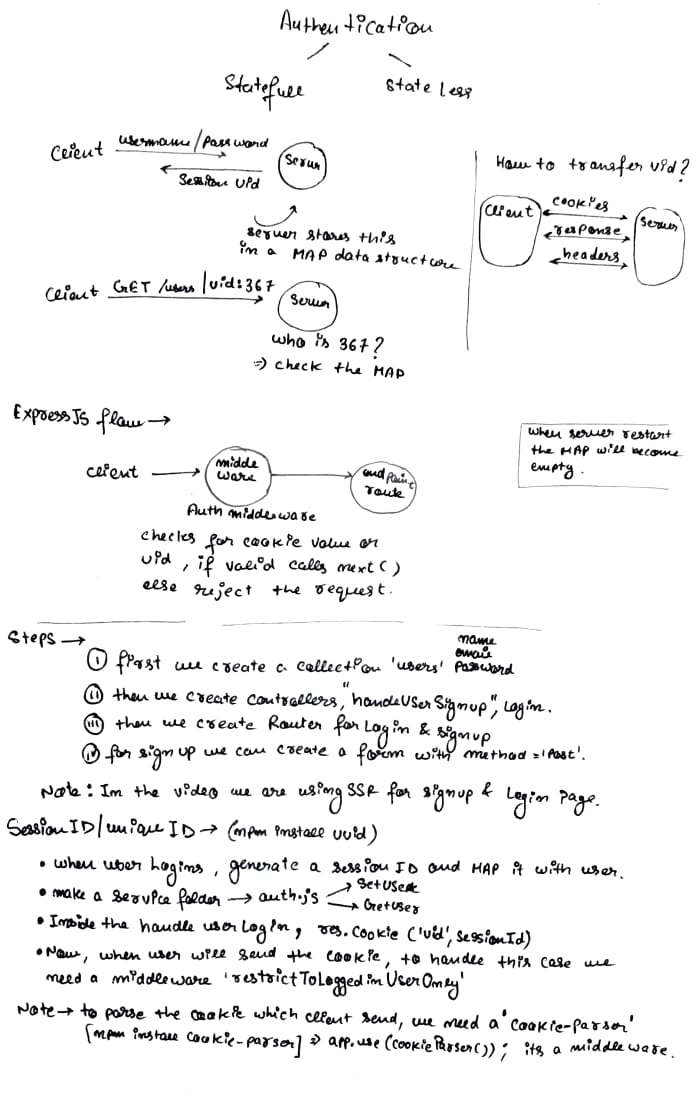 Authentication
Statefull
State Less
Client username/password Server
Session uid
server stores this
in a MAP data structure
Client GET /users | uid:367 Server
who is 367?
=> check the MAP
How to transfer uid?
Client cookies Server
response
headers
ExpressJS flow →
client → middle ware → end point route
Auth middleware
checks for cookie value or
uid, if valid calls next()
else reject the request.
when server restart
the MAP will become
empty.
Steps →
name
email
(i) first we create a collection 'users' password
(ii) then we create controllers, "handleUserSignup", Login.
(iii) then we create Router for Login & signup
(iv) for sign up we can create a form with method = 'Post'.
Note: In the video we are using SSR for signup & Login Page.
SessionID/unique ID → (npm install uuid)
• when user Logins, generate a session ID and MAP it with user.
• make a service folder → auth.js → SetUser
→ GetUser
• Inside the handle user Login, res.cookie ('uid', sessionId)
• Now, when user will send the cookie, to handle this case we
need a middleware 'restrictToLoggedinUserOnly'
Note → to parse the cookie which client send, we need a 'cookie-parser'
[npm install cookie-parser] => app.use (cookieParser()); its a middleware.